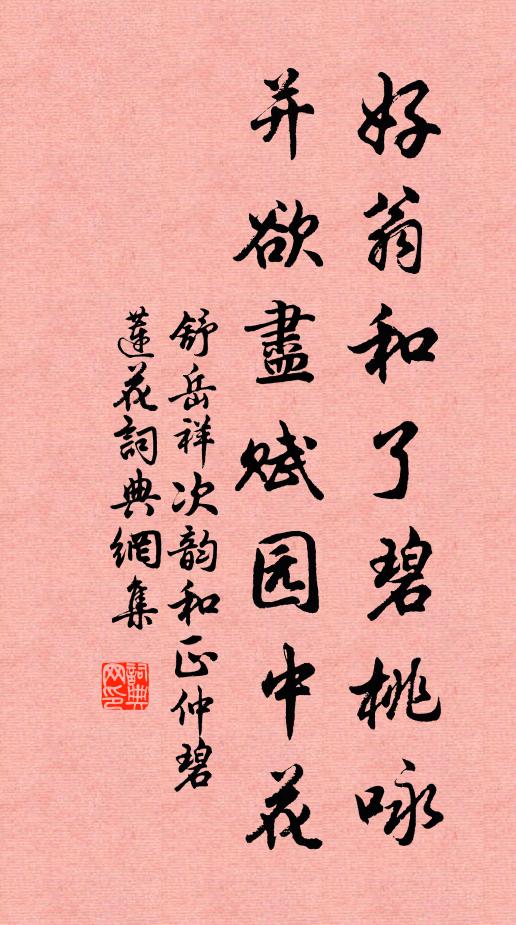 好翁和了碧桃咏
并欲盡赋园中花
舒岳祥次韵和正仲碧
蓮花詞典網集
詞典网印